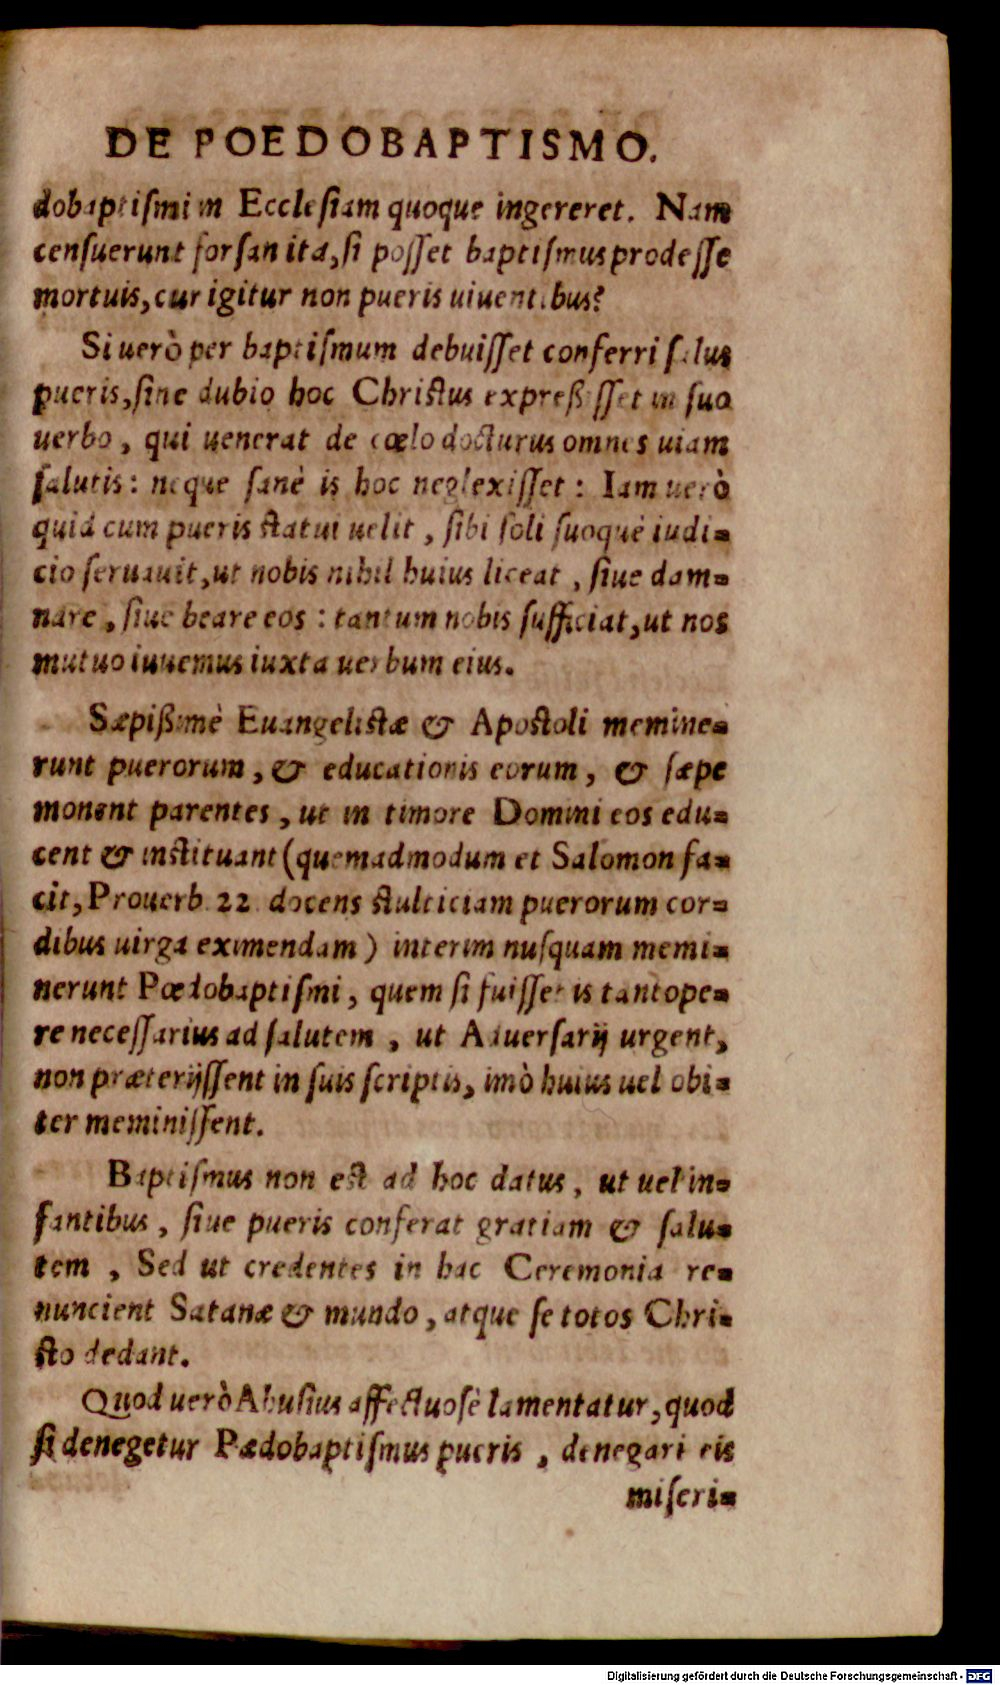 DE POEDOBAPTISMO.
dobaptiſmi in Eccleſiam quoque ingereret. Nam
cenſuerunt forſan ita, ſi poſſet baptiſmus prodeſſe
mortuis, cur igitur non pueris uiuentibus?
Si uerò per baptiſmum debuiſſet conferri ſalus
pueris, ſine dubio hoc Chriſtus expreßiſſet in ſuo
uerbo, qui uenerat de cœlo docturus omnes uiam
ſalutis: neque ſanè is hoc neglexiſſet: Iam uerò
quid cum pueris ſtatui uelit, ſibi ſoli ſuoquè iudi-
cio ſeruauit, ut nobis nihil huius liceat, ſiue dam-
nare, ſiue beare eos: tantum nobis ſufficiat, ut nos
mutuo iuuemus iuxta uerbum eius.
Sæpißimè Euangeliſtæ & Apoſtoli memine-
runt puerorum, & educationis eorum, & ſæpe
monent parentes, ut in timore Domini eos edu-
cent & inſtituant (quemadmodum et Salomon fa-
cit, Prouerb. 22. docens ſtulticiam puerorum cor-
dibus uirga eximendam) interim nuſquam memi-
nerunt Pœdobaptiſmi, quem ſi fuiſſet is tantope-
re neceſſarius ad ſalutem, ut Aduerſarij urgent,
non præterijſſent in ſuis ſcriptis, imò huius uel obi-
ter meminiſſent.
Baptiſmus non eſt ad hoc datus, ut uel in-
fantibus, ſiue pueris conferat gratiam & ſalu-
tem, Sed ut credentes in hac Ceremonia re-
nuncient Satanæ & mundo, atque ſe totos Chri-
ſto dedant.
Quod uerò Abuſius affectuoſè lamentatur, quod
ſi denegetur Pædobaptiſmus pueris, denegari eis
miſeri-
Digitalisierung gefördert durch die Deutsche Forschungsgemeinschaft - DFG